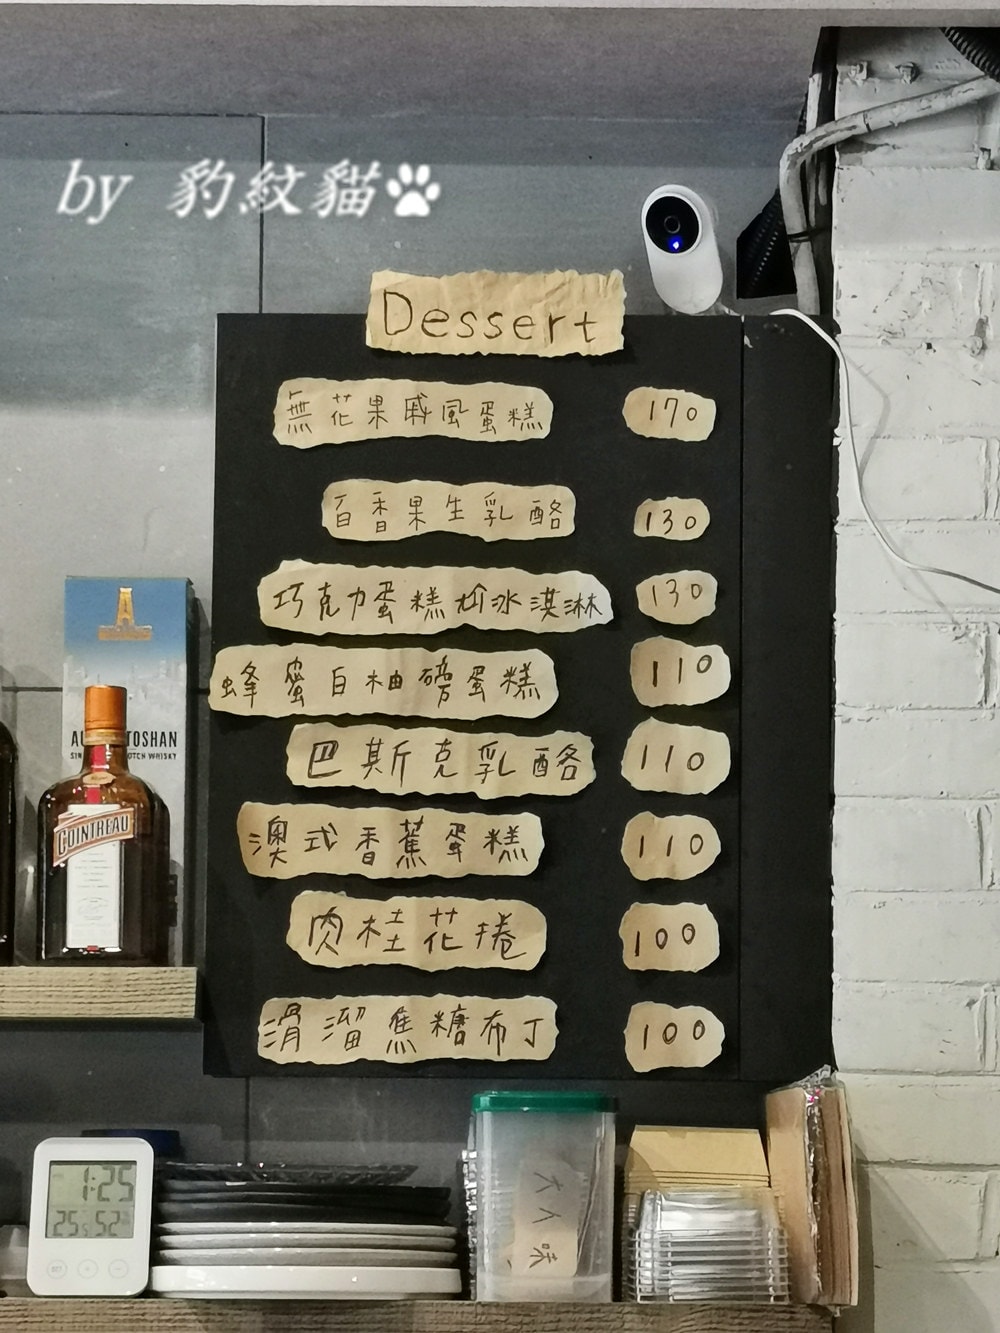 by 豹紋貓
Dessert
無花果戚風蛋糕 170
百香果生乳酪 130
巧克力蛋糕尬冰淇淋 130
蜂蜜白柚磅蛋糕 110
巴斯克乳酪 110
澳式香蕉蛋糕 110
肉桂花捲 100
滑溜焦糖布丁 100
TOSHAN
COINTREAU
1:25
25.5 52